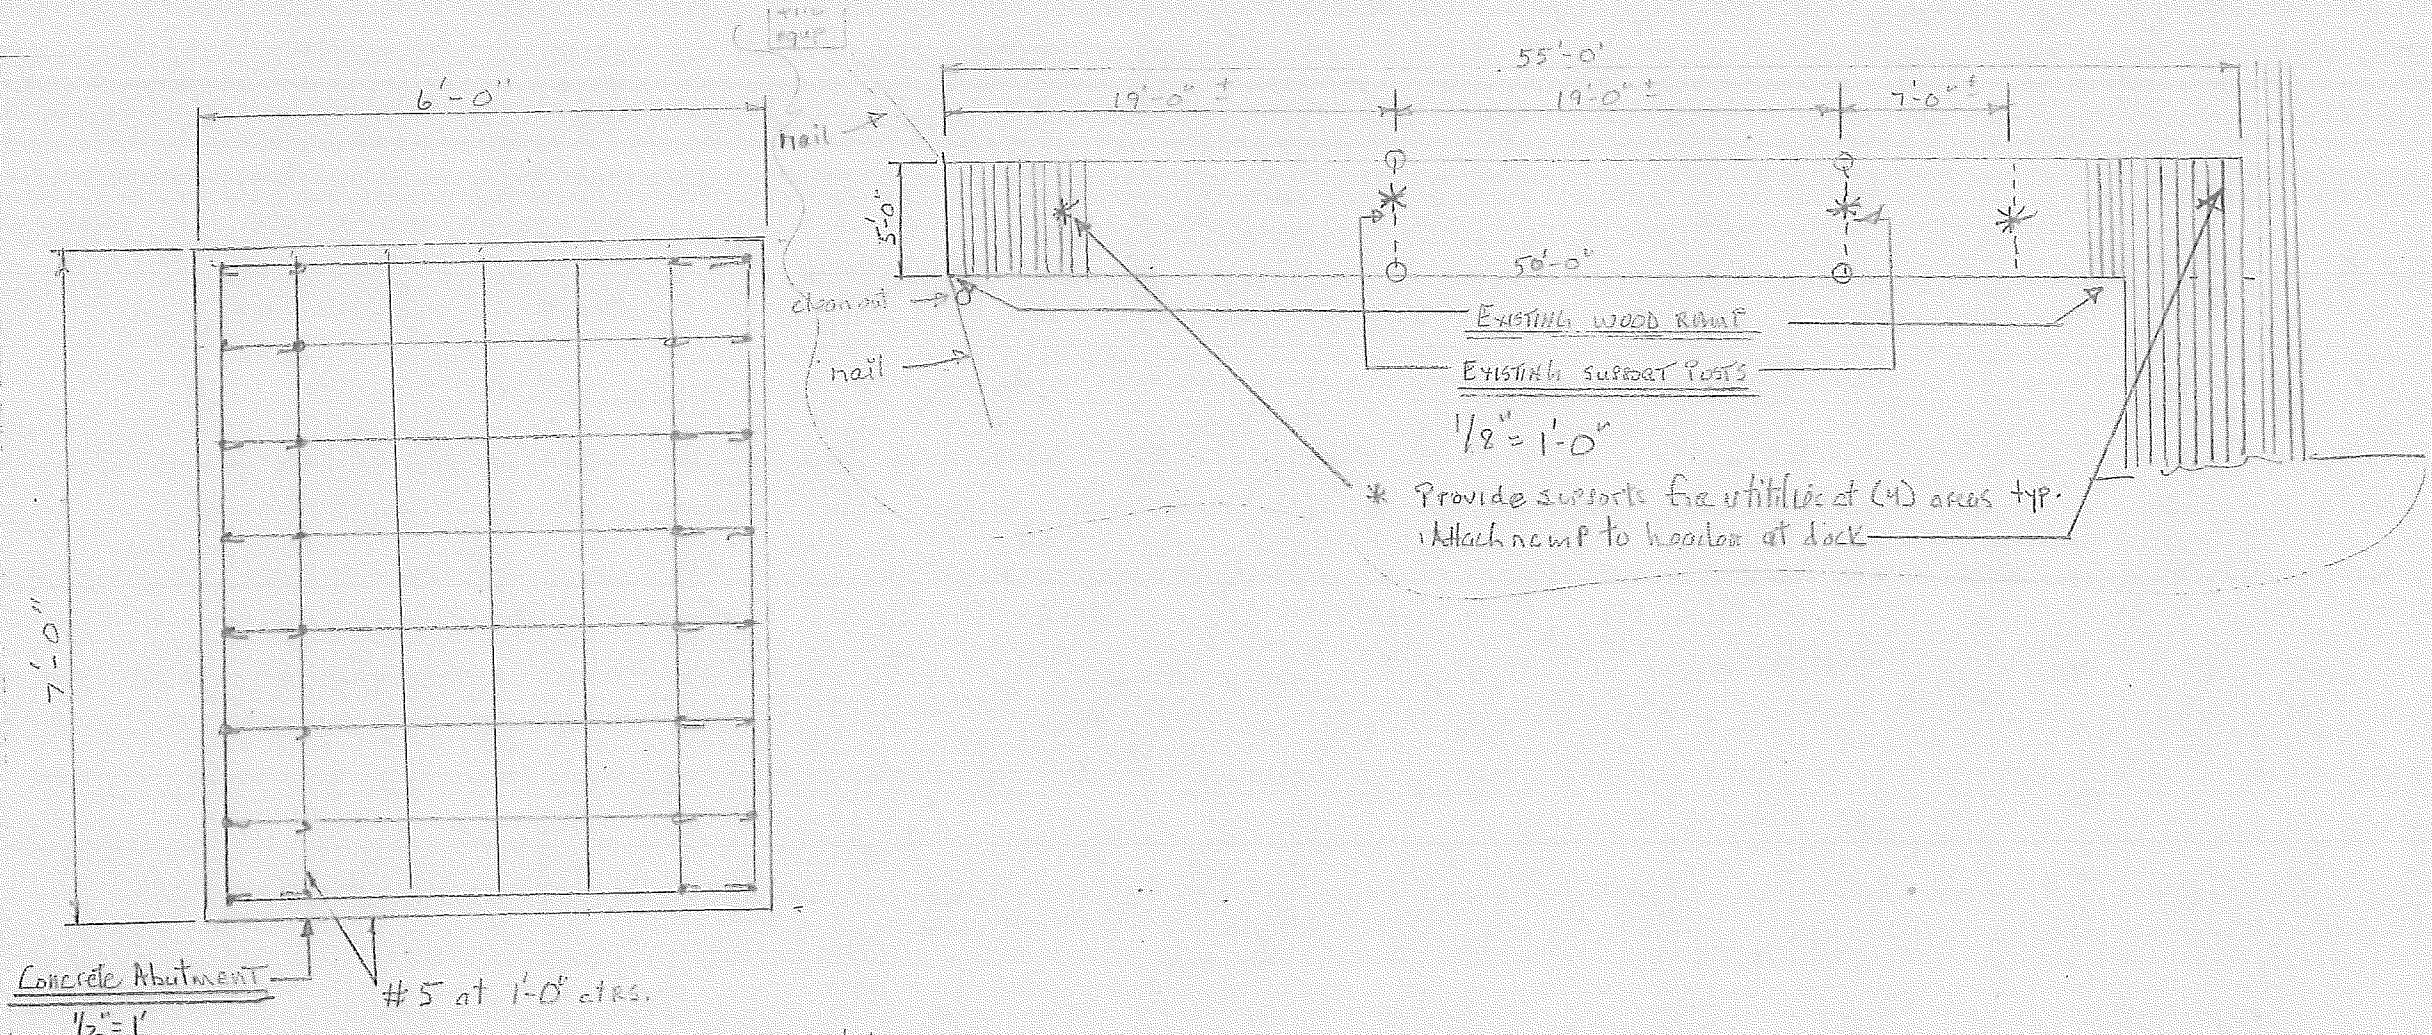 equip
6'-0"
7'-0"
Concrete Abutment
1/2"=1'
#5 at 1'-0" ctrs.
55'-0'
19'-0" ±
19'-0" ±
7'-0" ±
rail
5'-0"
50'-0"
cleanout
rail
EXISTING WOOD RAMP
EXISTING SUPPORT POSTS
1/8"=1'-0"
* Provide supports for utilities at (4) areas typ.
Attach ramp to header at dock